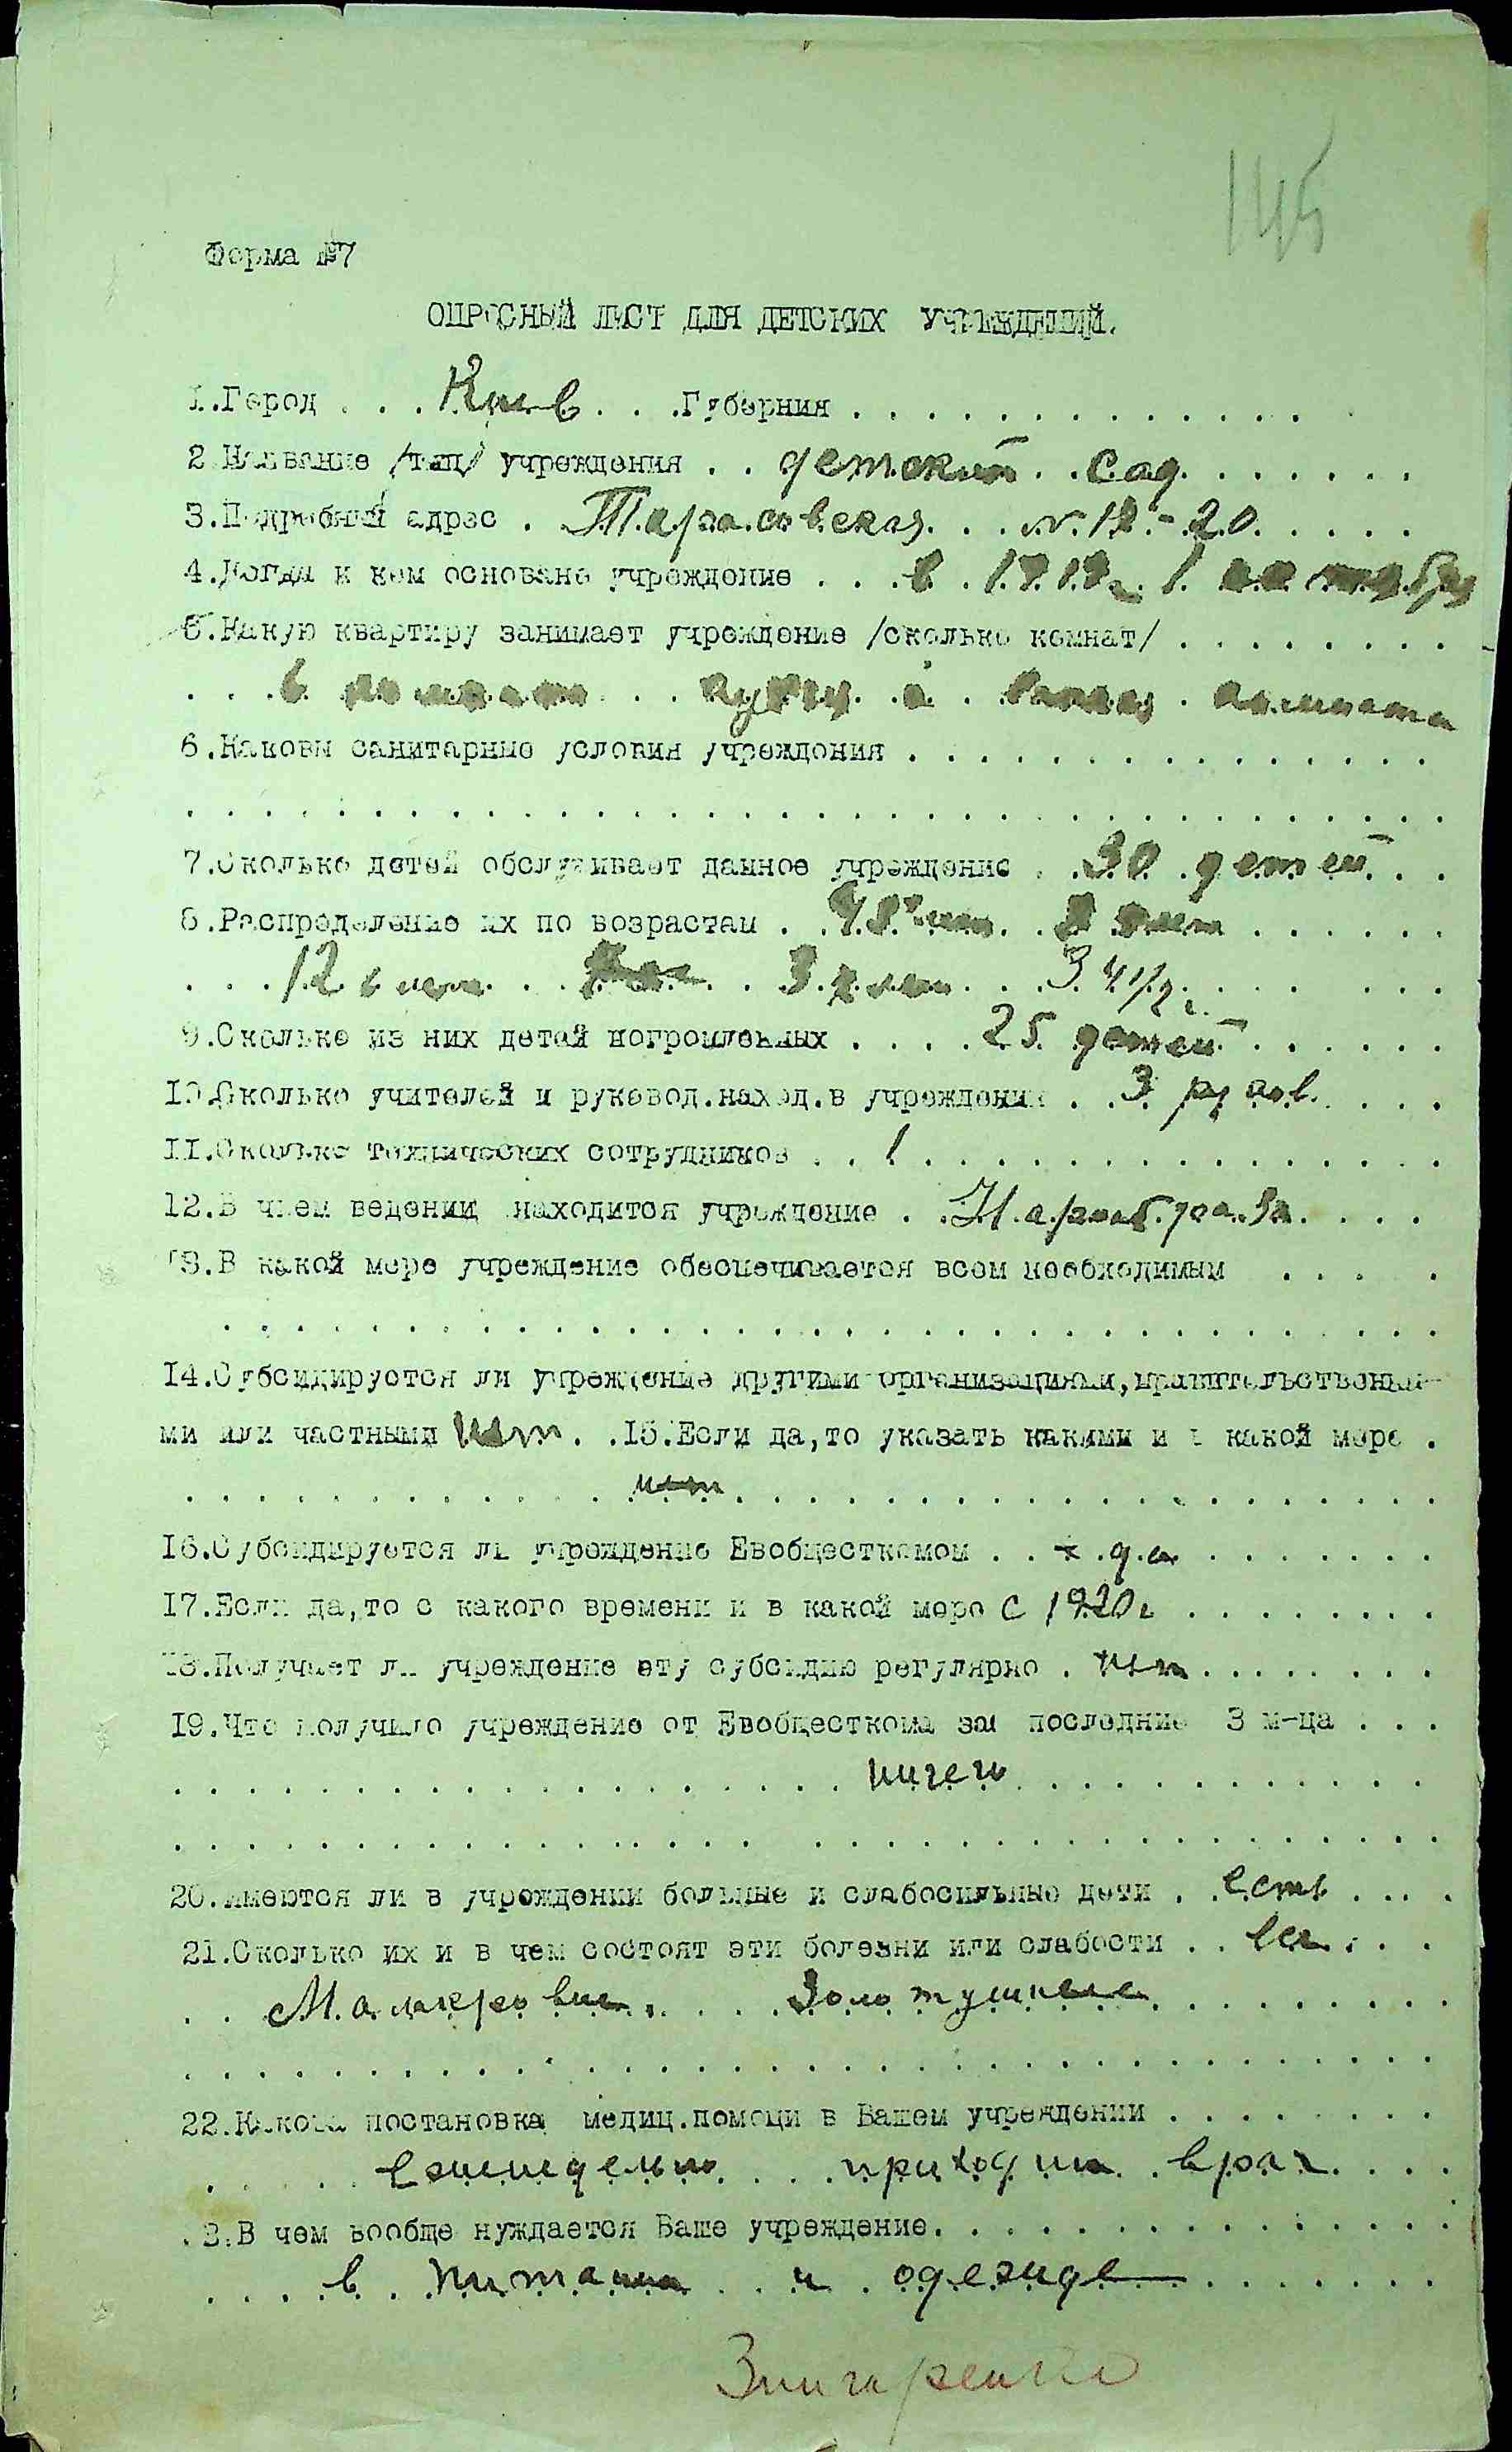 145
Форма №7
ОПРОСНЫЙ ЛИСТ ДЛЯ ДЕТСКИХ УЧРЕЖДЕНИЙ.
1.Город . . . Киев . . .Губерния . . . . . . . . . . . . .
2.Название /тип/ учреждения . . детский . . сад . . . . . . .
3.Подробный адрес . Тарасовская . . . № 12 - 20 . . . . .
4.Когда и кем основано учреждение . . . в 1919г. 1 октября
5.Какую квартиру занимает учреждение /сколько комнат/ . . . . . . . .
. . . 6 комнат . . кухня и ванная комната
6.Каковы санитарные условия учреждения . . . . . . . . . . . . . . .
7.Сколько детей обслуживает данное учреждение . . 30 детей . . .
8.Распределение их по возрастам . . . . . . . .
. . . 12 6 лет . . . 3 . . . 3 4 1/2 г. . . . . . .
9.Сколько из них детей погромленных . . . . 25 детей . . . . . .
10.Сколько учителей и руковод.наход.в учреждении . . 3 руков. . . .
11.Сколько технических сотрудников . . 1 . . . . . . . . . . . . . . .
12.В чьем ведении находится учреждение . . Наробраза . . . .
13.В какой мере учреждение обеспечивается всем необходимым . . . .
14.Субсидируется ли учреждение другими организациями,правительственны-
ми или частными нет . .15.Если да,то указать какими и в какой мере .
нет
16.Субсидируется ли учреждение Евобщесткомом . . да . . . . . . .
17.Если да,то с какого времени и в какой мере С 1920г . . . . . . .
18.Получает ли учреждение эту субсидию регулярно . нет . . . . . . .
19.Что получило учреждение от Евобщесткома за последние 3 м-ца . . .
ничего
20.Имеются ли в учреждении больные и слабосильные дети . . есть . . . .
21.Сколько их и в чем состоят эти болезни или слабости . . все . . .
. . Малокровие, . . . . Золотушные . . . . . . . . .
22.Какова постановка медиц.помощи в Вашем учреждении . . . . . . . .
. . . . . еженедельно . . . приходит врач . . . .
23.В чем вообще нуждается Ваше учреждение. . . . . . . . . . . . . . .
. . . . в питании . . и одежде . . . . . . .